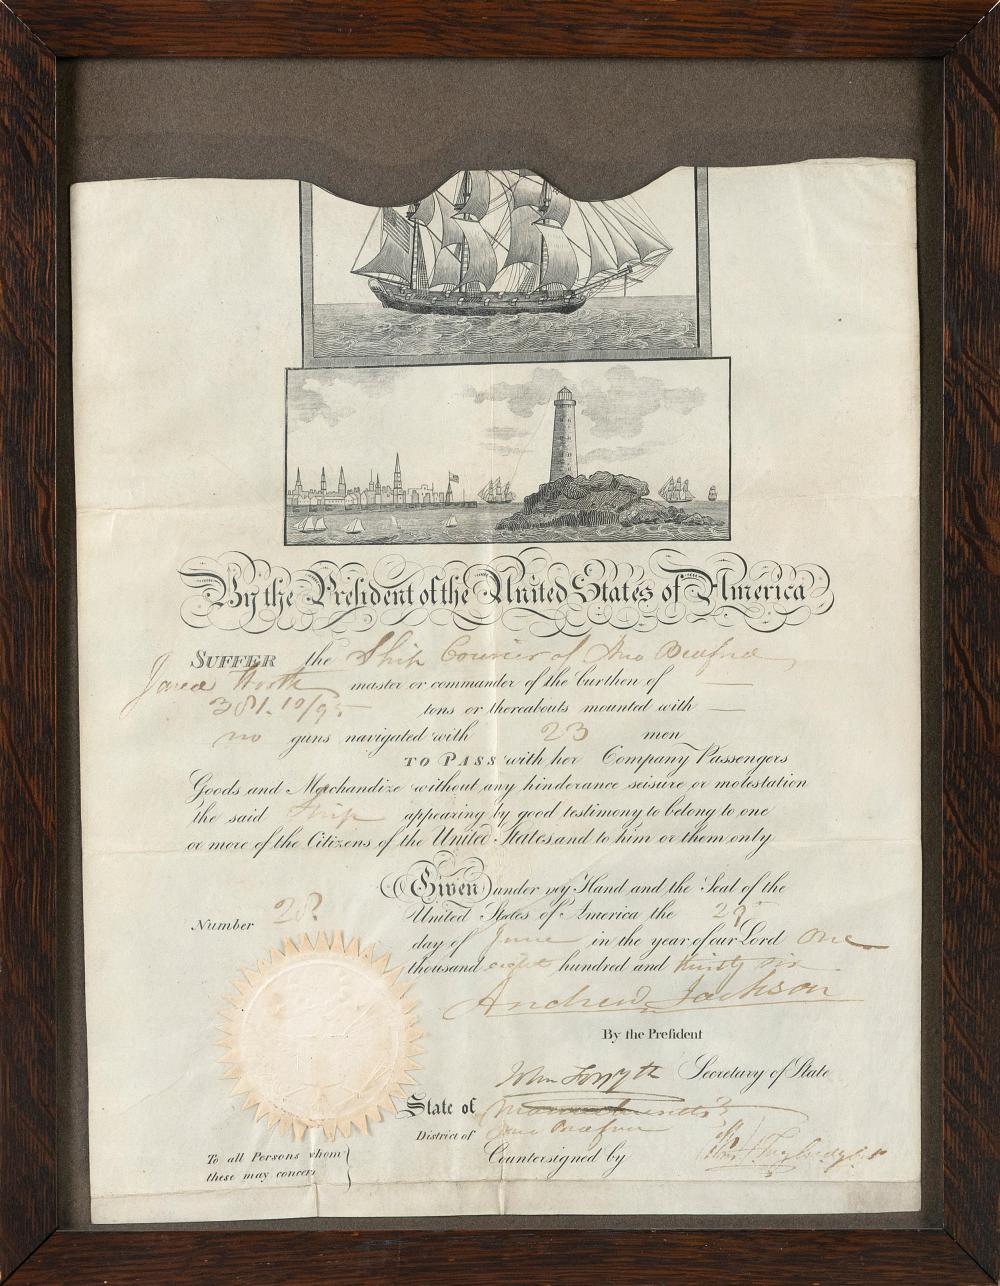 By the President of the United States of America
SUFFER the Ship Courier of New Bedford
Jared master or commander of the burthen of
381. 10/95 tons or thereabouts mounted with
no guns navigated with 23 men
TO PASS with her Company Passengers
Goods and Merchandize without any hinderance seisure or molestation
the said Ship appearing by good testimony to belong to one
or more of the Citizens of the United States and to him or them only
Given under my Hand and the Seal of the
United States of America the
Number 28.
day of June in the year of our Lord One
thousand eight hundred and thirty six
Andrew Jackson
By the President
John Forsyth Secretary of State
State of Massachusetts
District of New Bedford
To all Persons whom
these may concern
Countersigned by